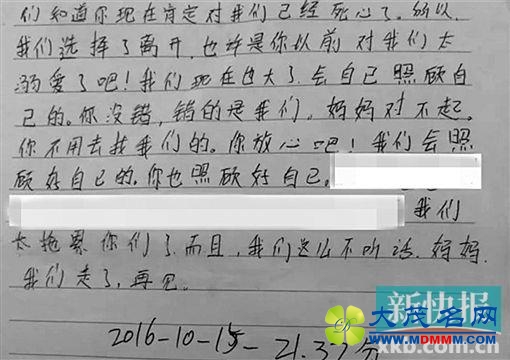 们知道你现在肯定对我们已经死心了。所以
我们选择了离开,也许是你以前对我们太
溺爱了吧!我们现在也大了,会自己照顾自
己的。你没错,错的是我们。妈妈对不起。
你不用去找我们的。你放心吧!我们会照
顾好自己的,你也照顾好自己。
我们
太拖累你们了,而且,我们这么不听话,妈妈,
我们走了,再见。
新快报
大茂名网
xkb.com.cn
www.MDMMM.com
2016-10-15- 21.33分